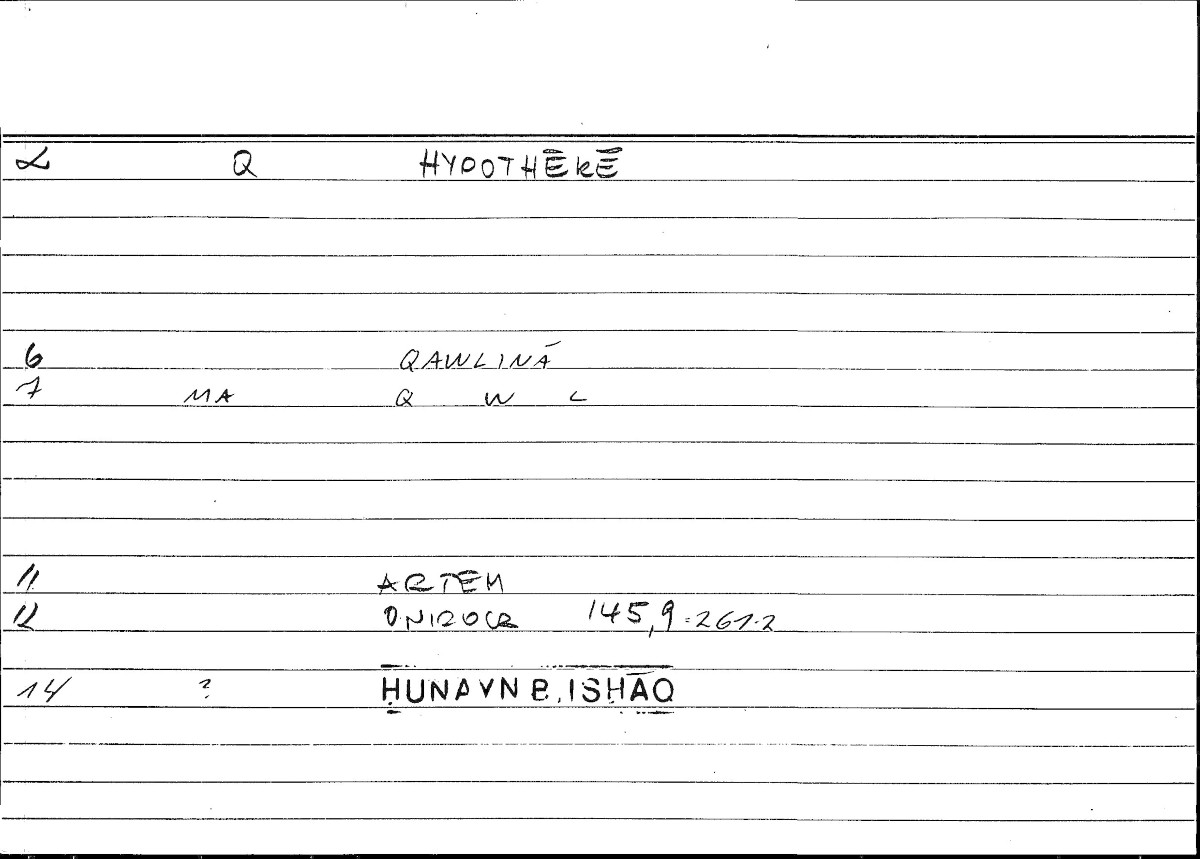 α Q HYPOTHĒKĒ
6 QAWLINĀ
7 MA Q W L
11 ARTEM
12 ONIROCR 145,9=261.2
14 ? ḤUNAYN B. ISḤĀQ